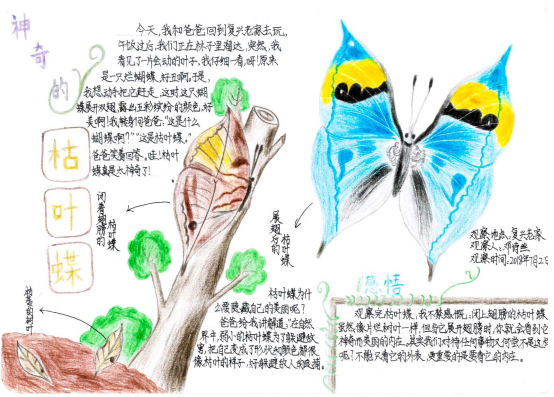 神奇的
枯叶蝶
今天,我和爸爸回到复兴老家去玩。
午饭过后,我们正在林子里溜达,突然,我
看见了一片会动的叶子,我仔细一看,呀!原来
是一只烂蝴蝶,好丑啊。于是,
我想动手把它赶走,这时这只蝴
蝶展开双翅,露出五彩缤纷的颜色,好
美啊!我转身问爸爸:“这是什么
蝴蝶啊?”“这是枯叶蝶。”
爸爸笑着回答。哇!枯叶
蝶真是太神奇了!
闭着翅膀的
枯叶蝶
展翅后的
枯叶蝶
观察地点:复兴老家
观察人:邓
观察时间:2018年7月2
枯叶蝶为什
么要隐藏自己的美丽呢?
爸爸给我讲解道:“在自然
界中,弱小的枯叶蝶为了躲避敌
害,把自己变成了形状和颜色都很
像枯叶的样子,好躲避敌人的追捕。
感悟
观察完枯叶蝶,我不禁感慨:闭上翅膀的枯叶蝶
虽然像片烂树叶一样,但当它展开翅膀时,你就会看到它
神奇而美丽的内在。其实我们对待任何事物又何尝不是这样
呢?不能只看它的外表,更重要的是要看它的内在。